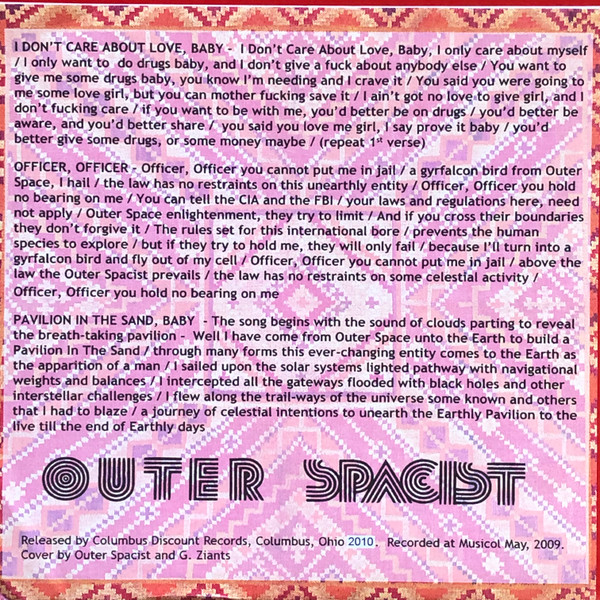 I DON'T CARE ABOUT LOVE, BABY - I Don't Care About Love, Baby, I only care about myself
/ I only want to do drugs baby, and I don't give a fuck about anybody else / You want to
give me some drugs baby, you know I'm needing and I crave it / You said you were going to
me some love girl, but you can mother fucking save it / I ain't got no love to give girl, and I
don't fucking care / if you want to be with me, you'd better be on drugs / you'd better be
aware, and you'd better share / you said you love me girl, I say prove it baby / you'd
better give some drugs, or some money maybe / (repeat 1st verse)
OFFICER, OFFICER - Officer, Officer you cannot put me in jail / a gyrfalcon bird from Outer
Space, I hail / the law has no restraints on this unearthly entity / Officer, Officer you hold
no bearing on me / You can tell the CIA and the FBI / your laws and regulations here, need
not apply / Outer Space enlightenment, they try to limit / And if you cross their boundaries
they don't forgive it / The rules set for this international bore / prevents the human
species to explore / but if they try to hold me, they will only fail / because I'll turn into a
gyrfalcon bird and fly out of my cell / Officer, Officer you cannot put me in jail / above
the law the Outer Spacist prevails / the law has no restraints on some celestial activity /
Officer, Officer you hold no bearing on me
PAVILION IN THE SAND, BABY - The song begins with the sound of clouds parting to reveal
the breath-taking pavilion - Well I have come from Outer Space unto the Earth to build a
Pavilion In The Sand / through many forms this ever-changing entity comes to the Earth as
the apparition of a man / I sailed upon the solar systems lighted pathway with navigational
weights and balances / I intercepted all the gateways flooded with black holes and other
interstellar challenges / I flew along the trail-ways of the universe some known and others
that I had to blaze / a journey of celestial intentions to unearth the Earthly Pavilion to the
live till the end of Earthly days
OUTER SPACIST
Released by Columbus Discount Records, Columbus, Ohio 2010. Recorded at Musicol May, 2009.
Cover by Outer Spacist and G. Ziants